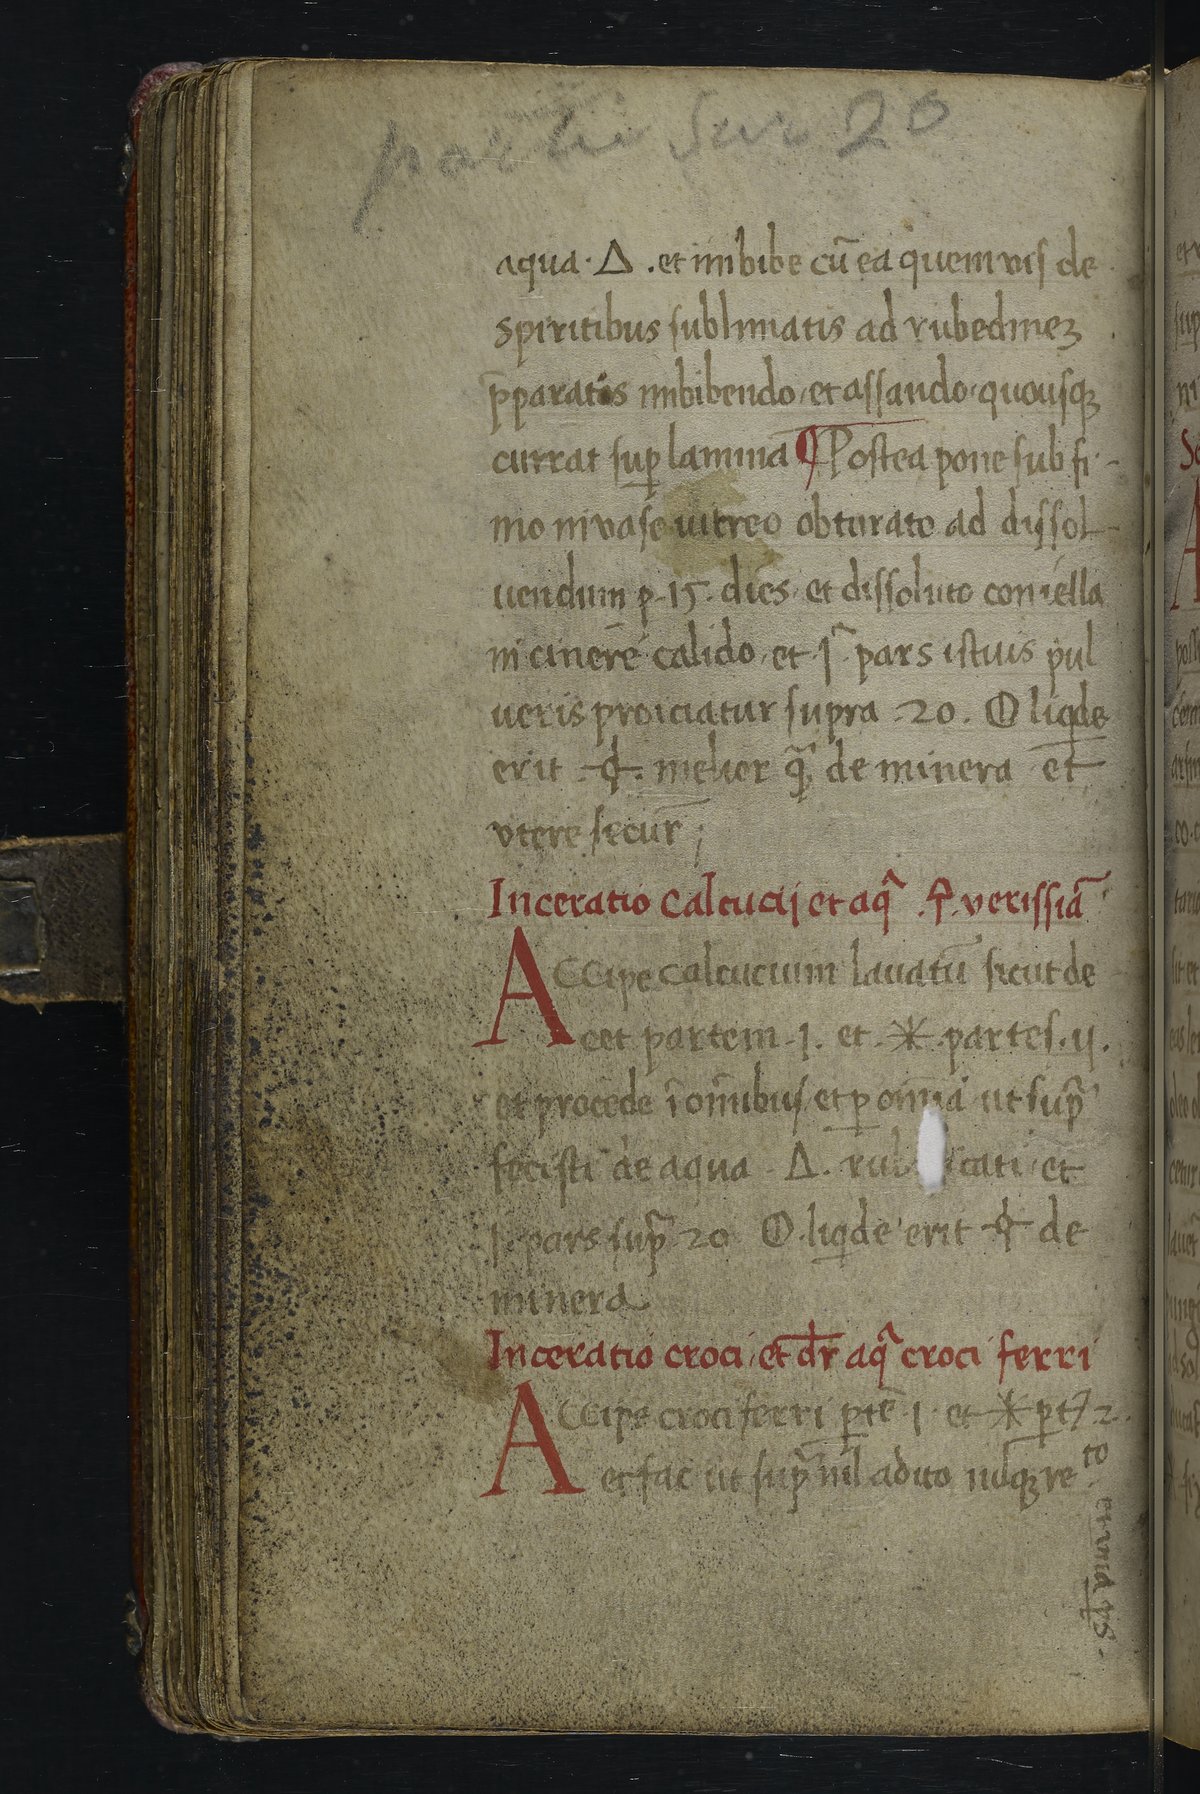 partie sur 20
aqua · Δ . et imbibe cū ea quem vis de
spiritibus sublimatis ad rubedineʒ
p̄paratis imbibendo et assando quousqʒ
currat suꝑ lamina ¶ Postea pone sub fi-
mo in vase uitreo obturato ad dissol-
uendum ꝑ 15. dies et dissoluto congella
in cinere calido et 1ᵃ pars istuis pul
ueris proiciatur supra .20. liqde
erit melior qᵃ de minera et
vtere secur̄ ;
Inceratio calcucij et aqᵃ verissiāᵃ
ACcipe calcucium lavatū sicut de
cet partem .1. et ✳ partes .ij.
et procede ī om̄ibus et ꝑ om̄ia ut supᵃ
fecisti de aqua . Δ . cati et
1. pars supᵃ 20 liqde erit de
minera
Inceratio croci et dr̄ aqᵃ croci ferri
ACcipe croci ferri ꝑtē .1. et ✳ ꝑt 2.
et fac ut supᵃ nil̄ adito re
to